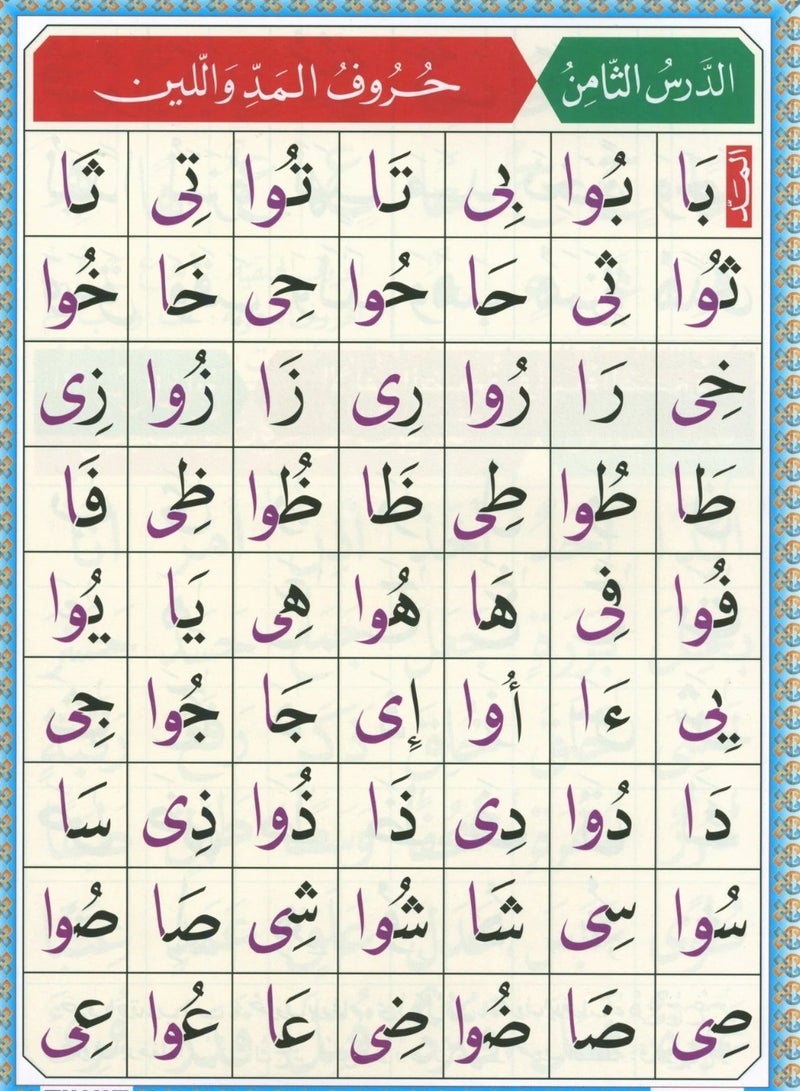 الدَّرسُ الثَّامِنُ حُرُوفُ المَدِّ وَاللّين
المَدّ بَا بُوا بِى تَا تُوا تِى ثَا
ثُوا ثِى حَا حُوا حِى خَا خُوا
خِى رَا رُوا رِى زَا زُوا زِى
طَا طُوا طِى ظَا ظُوا ظِى فَا
فُوا فِى هَا هُوا هِى يَا يُوا
يِى ءَا أُوا إِى جَا جُوا جِى
دَا دُوا دِى ذَا ذُوا ذِى سَا
سُوا سِى شَا شُوا شِى صَا صُوا
صِى ضَا ضُوا ضِى عَا عُوا عِى